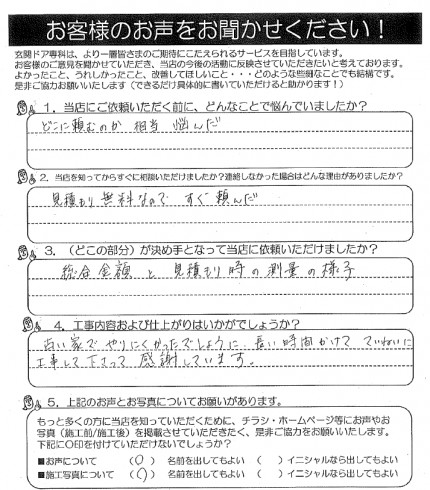 お客様のお声をお聞かせください！
玄関ドア専科は、より一層皆さまのご期待にこたえられるサービスを目指しています。
お客様のご意見を聞かせていただき、当店の今後の活動に反映させていただきたいと考えております。
よかったこと、うれしかったこと、改善してほしいこと・・・どのような些細なことでも結構です。
是非ご協力お願いいたします（できるだけ具体的に書いていただけると助かります！）
1．当店にご依頼いただく前に、どんなことで悩んでいましたか？
どこに頼むのか 相当 悩んだ
2．当店を知ってからすぐに相談いただけましたか？連絡しなかった場合はどんな理由がありましたか？
見積もり無料なので すぐ頼んだ
3．（どこの部分）が決め手となって当店に依頼いただけましたか？
総合金額と見積もり時の測量の様子
4．工事内容および仕上がりはいかがでしょうか？
古い家でやりにくかったでしょうに 長い時間かけて ていねいに
工事して下さって 感謝しています。
5．上記のお声とお写真についてお願いがあります。
もっと多くの方に当店を知っていただくために、チラシ・ホームページ等にお声やお
写真（施工前/施工後）を掲載させていただきたく、是非ご協力をお願いいたします。
下記に〇印を付けていただけないでしょうか？
■お声について （〇）名前を出してもよい （ ）イニシャルなら出してもよい
■施工写真について （〇）名前を出してもよい （ ）イニシャルなら出してもよい